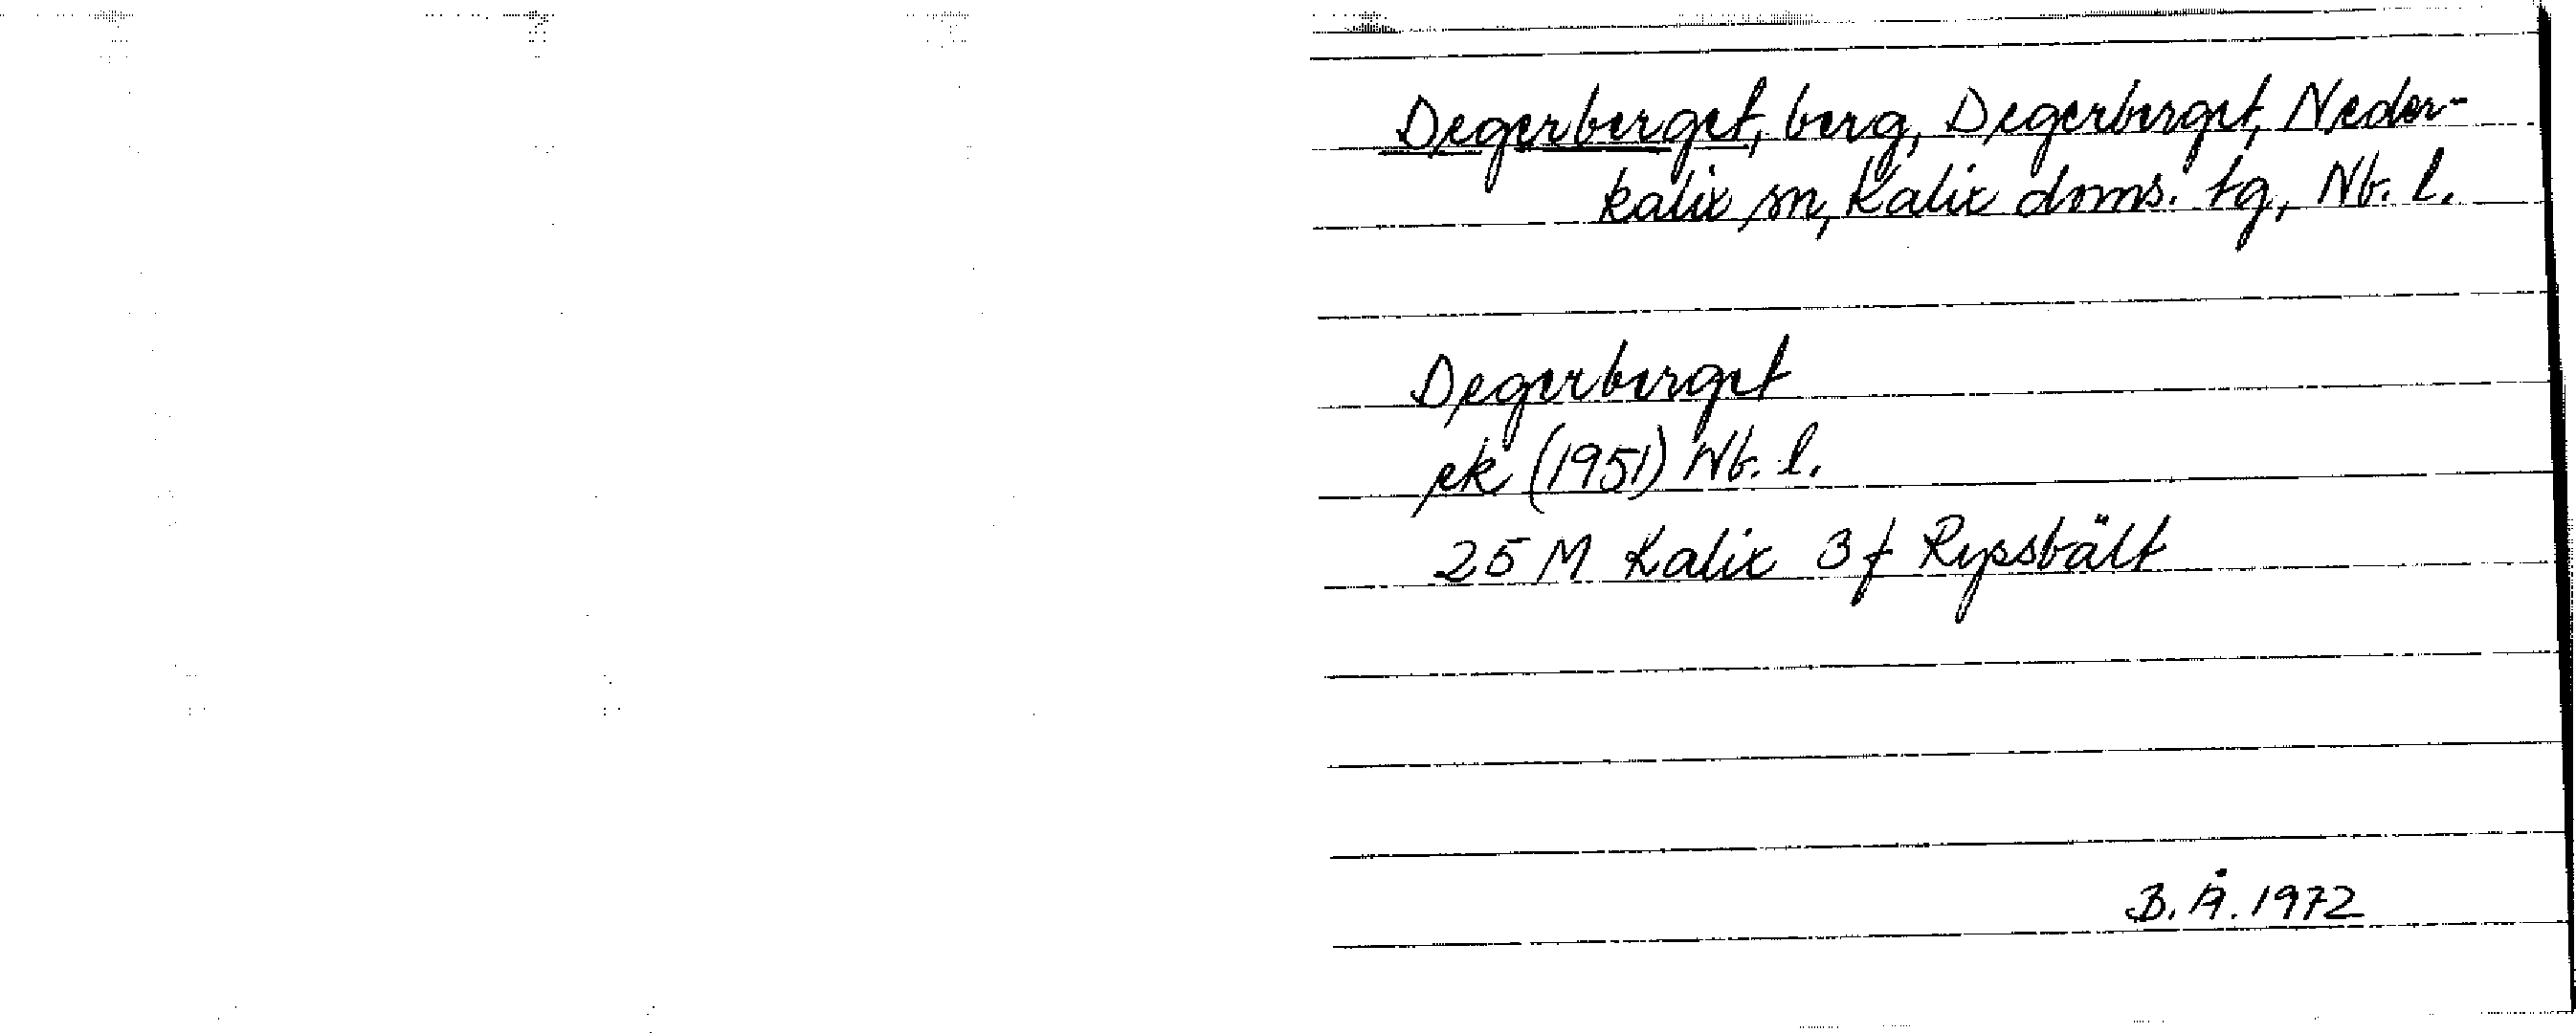 Degerberget, berg, Degerberget, Neder-
kalix sn, Kalix doms. tg, Nb. l.
Degerberget
ek (1951) Nb. l.
25 M Kalix 3 f Ryssbält
B. Å. 1972